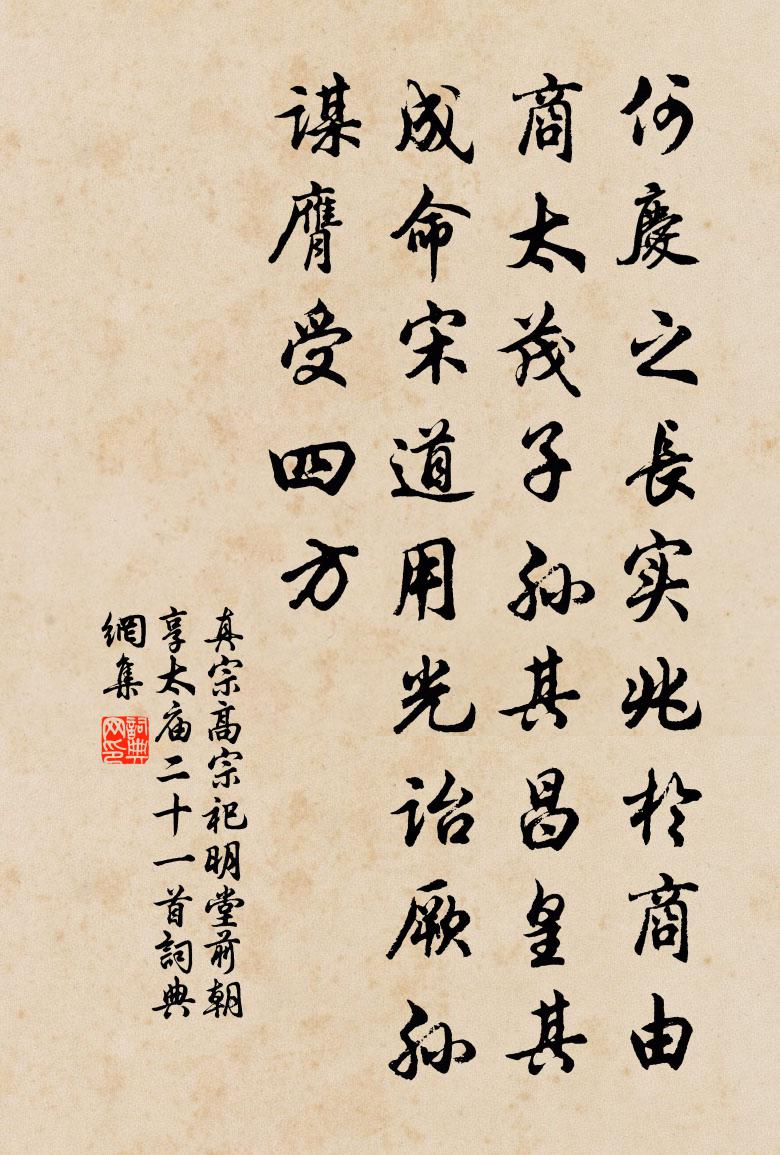 何慶之長实兆於商由
商太茂子孙其昌皇其
成命宋道用光诒厥孙
谋膺受四方
真宗高宗祀明堂前朝
享太庙二十一首詞典
網集
詞典網印